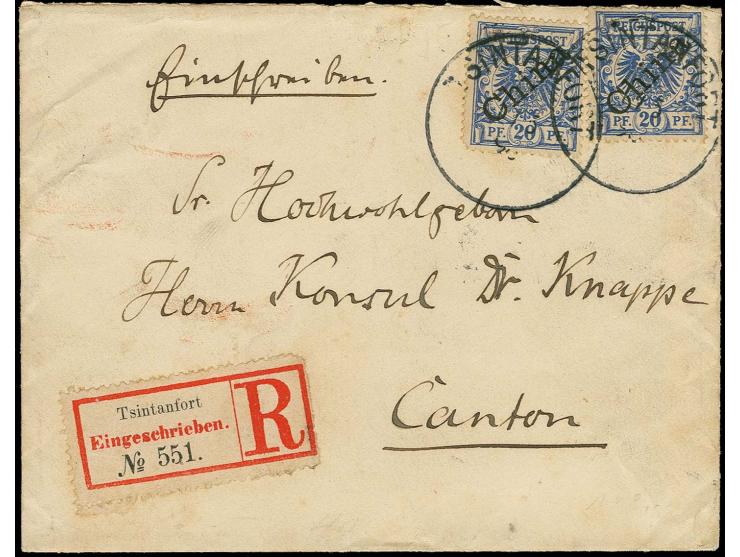 Einschreiben.
REICHSPOST
China
PF. 20 PF.
REICHSPOST
China
PF. 20 PF.
TSINTANFORT
TSINTANFORT
Sr. Hochwohlgeborn
Herrn Konsul Dr. Knappe
Canton
Tsintanfort
Eingeschrieben.
№ 551.
R